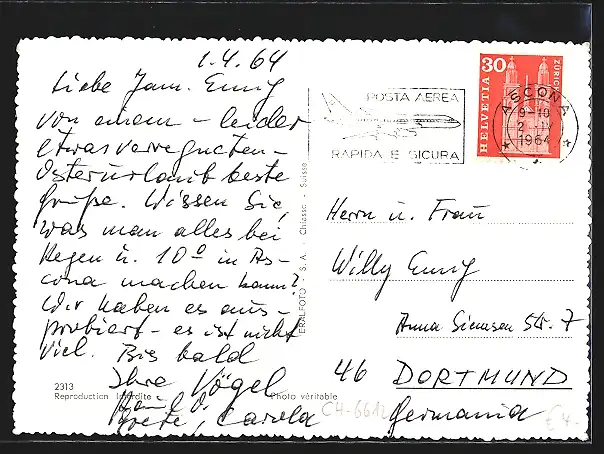 1.4.64
Liebe Fam. Emig
von einem – leider
etwas verregneten –
Osterurlaub beste
Grüße. Wissen Sie,
was man alles bei
Regen u. 10° in As-
cona machen kann?
Wir haben es aus-
probiert – es ist nicht
viel. Bis bald
Ihre Vögel
Carola
2313
Reproduction interdite
Photo véritable
ERALFOTO S. A. - Chiasso - Suisse
POSTA AEREA
RAPIDA E SICURA
30
HELVETIA
ZÜRICH
ASCONA
9-10
2. IV
1964
Herrn u. Frau
Willy Emig
Anna Siemsen Str. 7
46 DORTMUND
Germania
CH-6612
€ 4,-